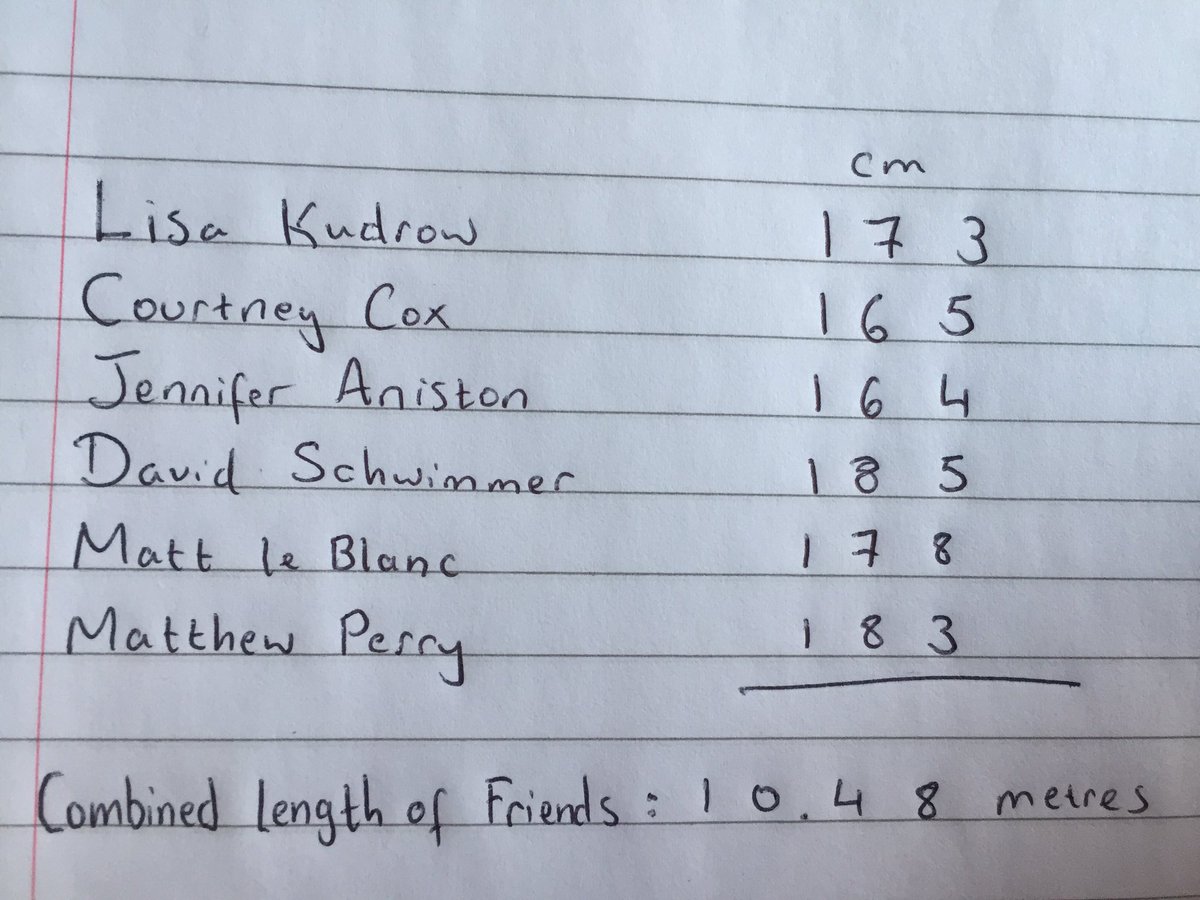 cm
Lisa Kudrow 173
Courtney Cox 165
Jennifer Aniston 164
David Schwimmer 185
Matt le Blanc 178
Matthew Perry 183
Combined length of Friends: 10.48 metres